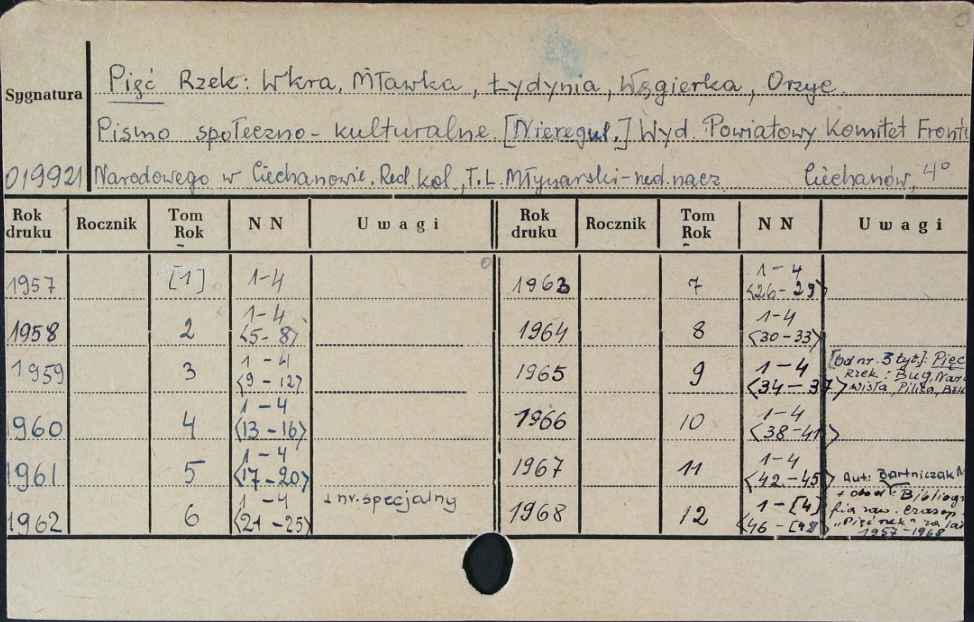 Pięć Rzek: Wkra, Mławka, Łydynia, Węgierka, Orzyc.
Sygnatura
Pismo społeczno-kulturalne. [Nieregul.] Wyd. Powiatowy Komitet Frontu
019921 Narodowego w Ciechanowie. Red. kol., T.L. Młynarski-red. nacz. Ciechanów, 4°
Rok druku Rocznik Tom Rok NN Uwagi Rok druku Rocznik Tom Rok NN Uwagi
1957 [1] 1-4 1963 7 1-4 <26-29>
1958 2 1-4 <5-8> 1964 8 1-4 <30-33>
1959 3 1-4 <9-12> 1965 9 1-4 <34-37> [od nr. 3 tyt]: Pięć Rzek: Bug, Wisła, Pilica,
1960 4 1-4 <13-16> 1966 10 1-4 <38-41>
1961 5 1-4 <17-20> 1967 11 1-4 <42-45>
1962 6 1-4 <21-25> + nr. specjalny 1968 12 1-[4] <46-[48]> Aut: Bartniczak M + Bibliogra fia zaw. czasop. "Pięć rzek" za 1957-1968